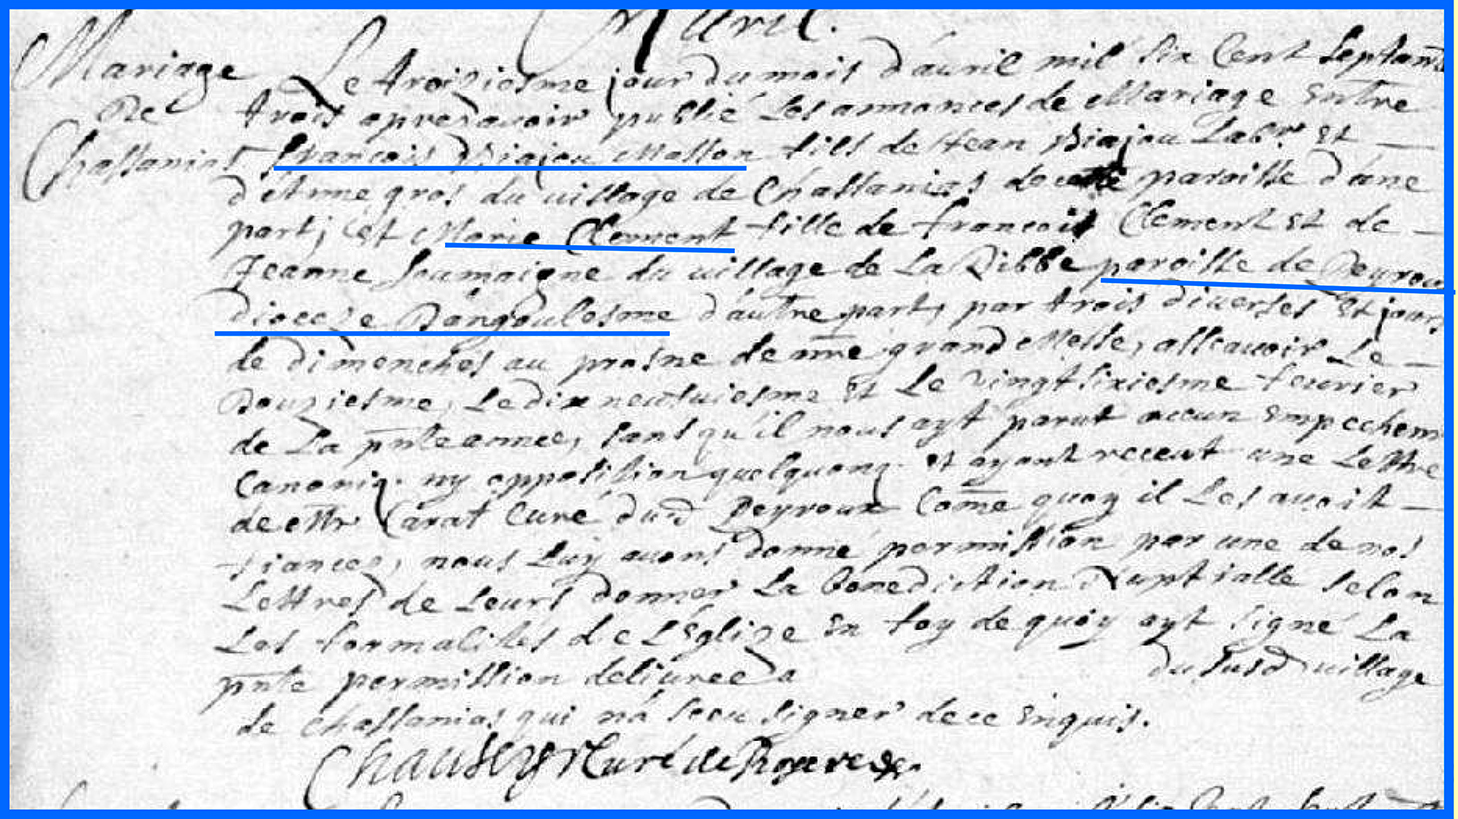 Avril.
Mariage
De
Chassanias
Le troiziesme jour du mois d'avril mil six cent septante
trois apres avoir publié Les annonces de Mariage Entre
François Biajou Masson fils de Jean Biajou Labr. Et
d'Anne gros du village de Chassanias de cette paroisse d'une
part; Et Marie Clement fille de françois Clement Et de
Jeanne Soumaigne du village de La Ribbe paroisse de Peyroux
dioceze D'angoulesme d'autre part, par trois diverses Et jours
de dimenches au prosne de nre grand Messe, assavoir Le
Douziesme, Le dix neufviesme Et Le vingt sixiesme fevrier
de La pnte annee, sans qu'il nous ayt parut aucun Empechem
Canoniq. ny opposition quelquonq. Et ayant receut une Lettre
de Mr Carat Curé dud Peyroux Come quoy il Les avoit
fiances, nous Luy avons donné permission par une de nos
Lettres de Leurs donner La Benediction Nuptialle selon
Les formalités de L'Eglize En foy de quoy ayt signé La
pnte permission delivree a du susd village
de Chassanias qui n'a sceu signer de ce Enquis.
Curé de